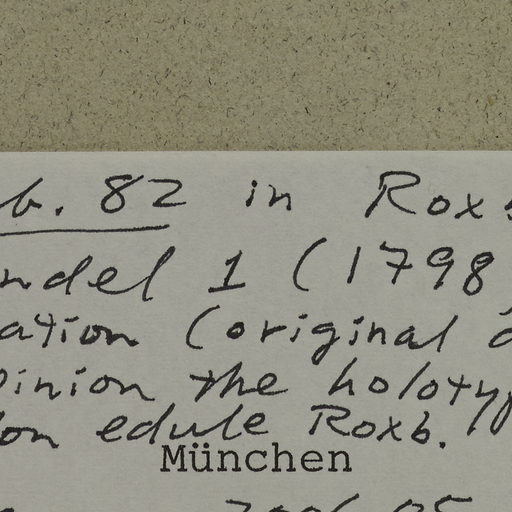 b. 82 in Roxb
ndel 1 (1798
ation (original d
pinion the holotyp
don edule Roxb.
München